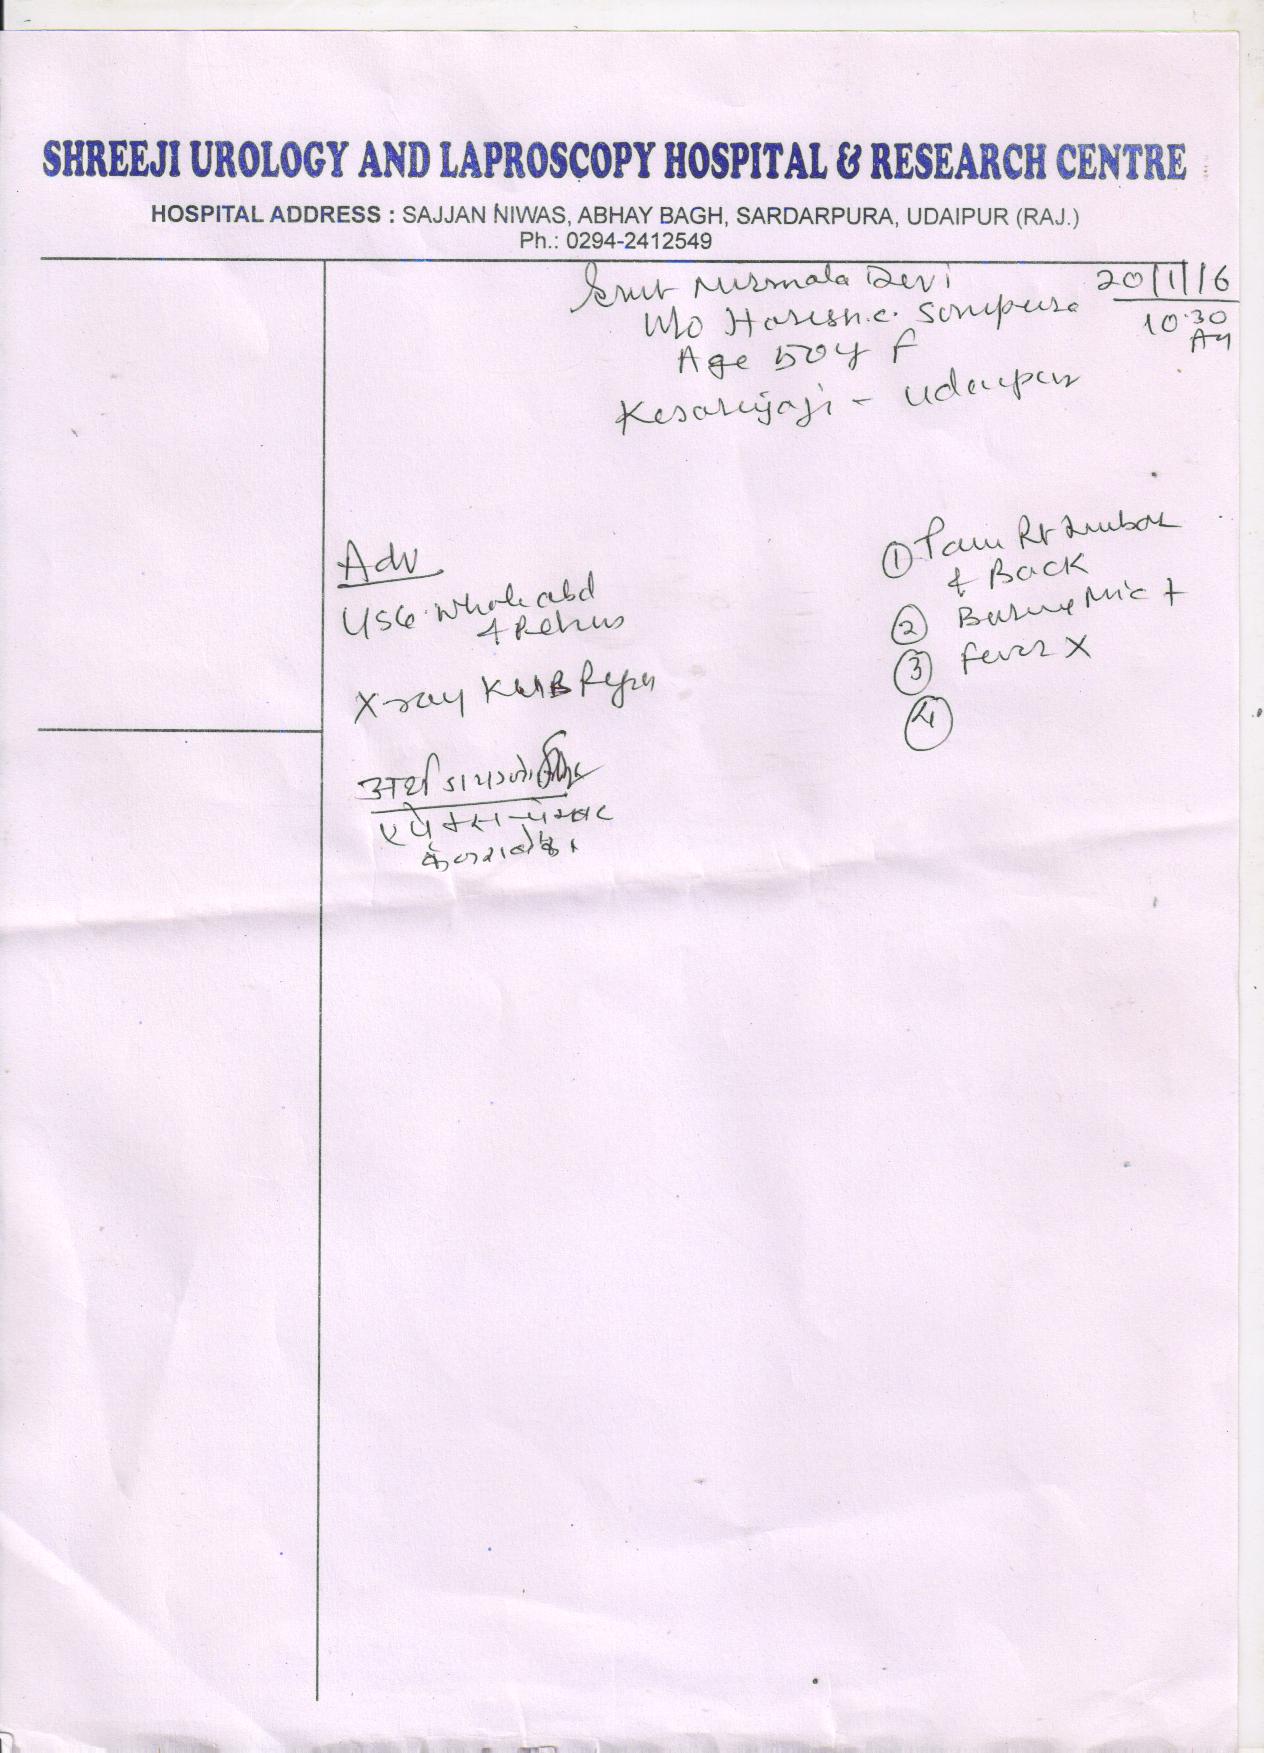 SHREEJI UROLOGY AND LAPROSCOPY HOSPITAL & RESEARCH CENTRE
HOSPITAL ADDRESS : SAJJAN NIWAS, ABHAY BAGH, SARDARPURA, UDAIPUR (RAJ.)
Ph.: 0294-2412549
Smt Nirmala Devi
W/o Harish.c. Sompura
Age 50 y F
Kesariyaji - Udaipur
20/1/16
10.30
AM
① Pain Rt Lumbar
& Back
② Burning Mic +
③ Fever X
④
Adv
USG. Whole abd
& Pelvis
X-ray KUB Region